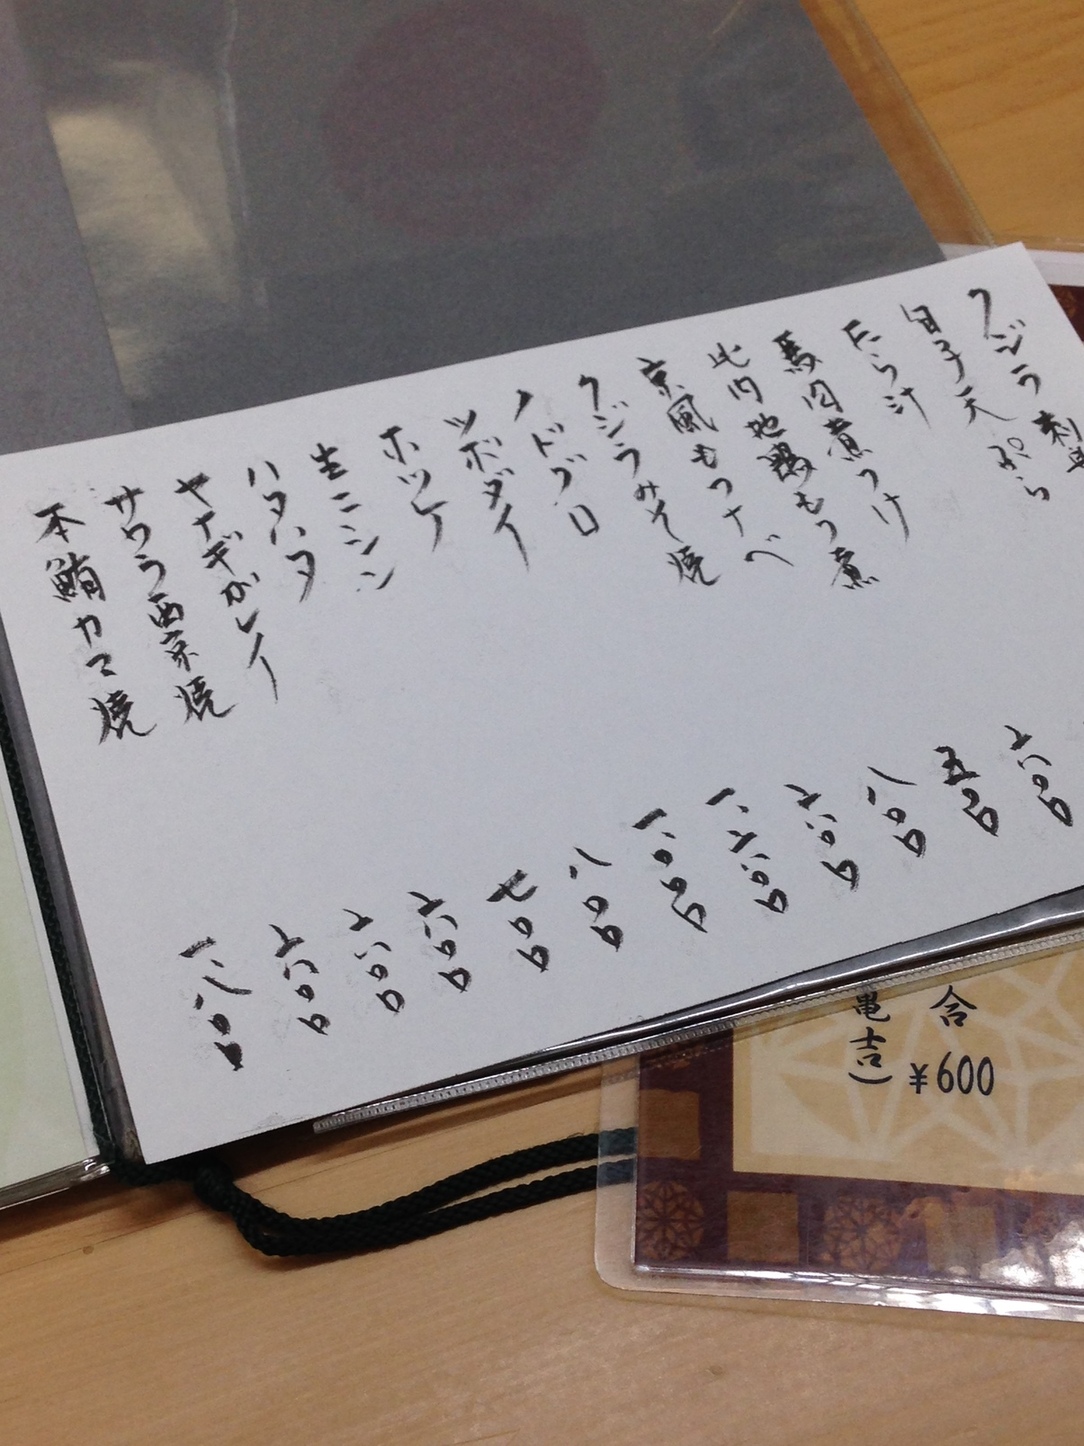 クジラ刺身
白子天ぷら
たら汁
馬肉煮つけ 六〇〇
比内地鶏もつ煮 五〇〇
京風もつナベ 八〇〇
クジラみそ焼 六〇〇
ノドグロ 一、六〇〇
ツボダイ 一、〇〇〇
ホッケ 八〇〇
生ニシン 七〇〇
ハタハタ 六〇〇
ヤナギガレイ 六〇〇
サワラ西京焼 六〇〇
本鮪カマ焼 一、八〇〇
合
亀吉）
¥600